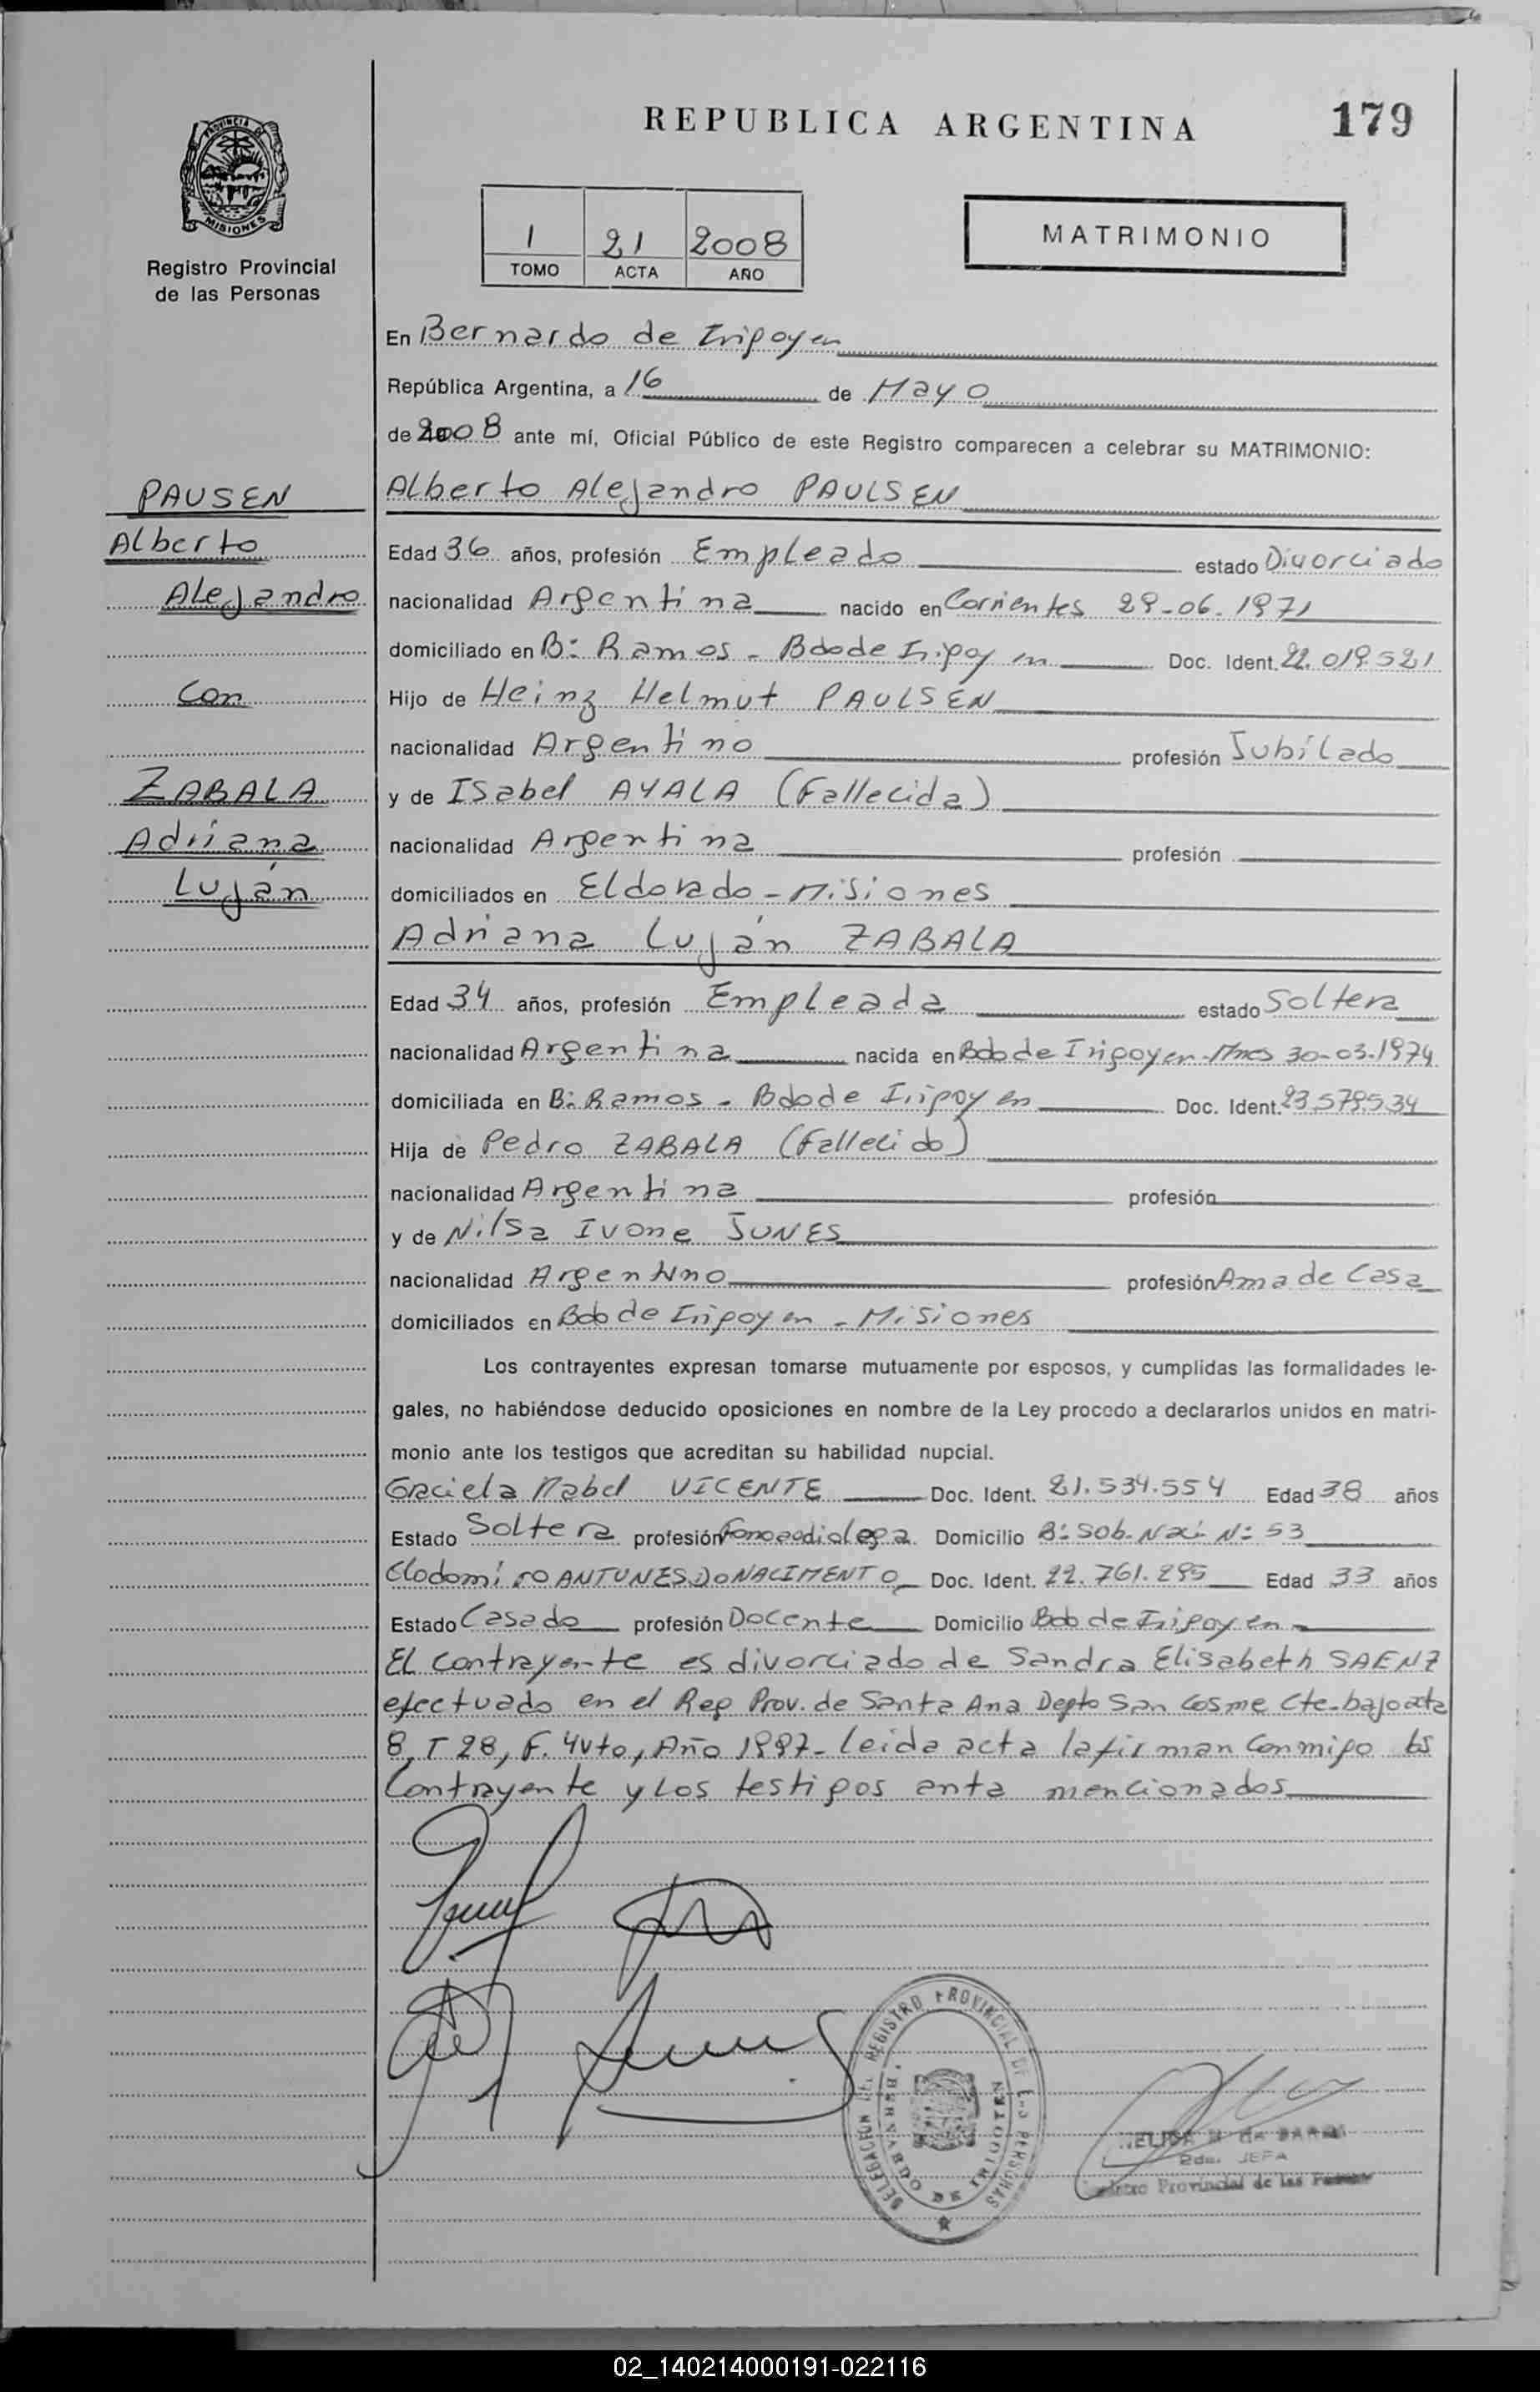 REPUBLICA ARGENTINA
179
PROVINCIA DE
MISIONES
Registro Provincial
de las Personas
1 21 2008
TOMO ACTA AÑO
MATRIMONIO
En Bernardo de Irigoyen
República Argentina, a 16 de Mayo
de 2008 ante mí, Oficial Público de este Registro comparecen a celebrar su MATRIMONIO:
PAUSEN
Alberto
Alejandro
Con
ZABALA
Adriana
Luján
Alberto Alejandro PAULSEN
Edad 36 años, profesión Empleado estado Divorciado
nacionalidad Argentina nacido en Corrientes 29-06-1971
domiciliado en B: Ramos - Bdo de Irigoyen Doc. Ident. 22.019.521
Hijo de Heinz Helmut PAULSEN
nacionalidad Argentino profesión Jubilado
y de Isabel AYALA (Fallecida)
nacionalidad Argentina profesión
domiciliados en Eldorado - Misiones
Adriana Luján ZABALA
Edad 34 años, profesión Empleada estado Soltera
nacionalidad Argentina nacida en Bdo de Irigoyen-Mnes 30-03-1974
domiciliada en B: Ramos - Bdo de Irigoyen Doc. Ident. 23.579.534
Hija de Pedro ZABALA (Fallecido)
nacionalidad Argentina profesión
y de Nilsa Ivone JUNES
nacionalidad Argentino profesión Ama de Casa
domiciliados en Bdo de Irigoyen - Misiones
Los contrayentes expresan tomarse mutuamente por esposos, y cumplidas las formalidades le-
gales, no habiéndose deducido oposiciones en nombre de la Ley procedo a declararlos unidos en matri-
monio ante los testigos que acreditan su habilidad nupcial.
Graciela Mabel VICENTE Doc. Ident. 21.534.554 Edad 38 años
Estado Soltera profesión Fonoaudiologa Domicilio B: Sob. Naci. N: 53
Clodomiro ANTUNES DO NACIMENTO Doc. Ident. 22.761.295 Edad 33 años
Estado Casado profesión Docente Domicilio Bdo de Irigoyen
El contrayente es divorciado de Sandra Elisabeth SAENZ
efectuado en el Reg Prov. de Santa Ana Depto San Cosme Cte. bajo acta
8, T 28, F. 4vto, Año 1997- leida acta la firman Conmigo los
Contrayente y los testigos anta mencionados
DELEGACION DEL REGISTRO PROVINCIAL DE LAS PERSONAS
BERNARDO DE IRIGOYEN
JEFA
Provincial de las
02_140214000191-022116